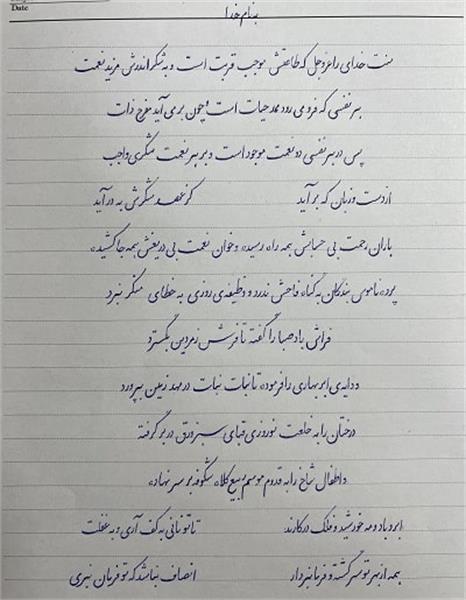 Date
بنام خدا
منت خدای را عزوجل که طاعتش موجب قربت است و به شکر اندرش مزید نعمت
هر نفسی که فرو می رود ممد حیات است و چون برمی آید مفرح ذات
پس در هر نفسی دو نعمت موجود است و بر هر نعمت شکری واجب
از دست و زبان که برآید کز عهده شکرش به در آید
باران رحمت بی حسابش همه را رسیده و خوان نعمت بی دریغش همه جا کشیده
پرده ناموس بندگان به گناه فاحش ندرد و وظیفه ی روزی به خطای منکر نبرد
فراش باد صبا را گفته تا فرش زمردین بگسترد
و دایه ی ابر بهاری را فرموده تا نبات نبات در مهد زمین بپرورد
درختان را به خلعت نوروزی قبای سبز ورق در بر گرفته
و اطفال شاخ را به قدوم موسم ربیع کلاه شکوفه بر سر نهاده
ابر و باد و مه خورشید و فلک در کارند تا تو نانی به کف آری و به غفلت
همه از بهر تو سرگشته و فرمانبردار انصاف نباشد که تو فرمان نبری